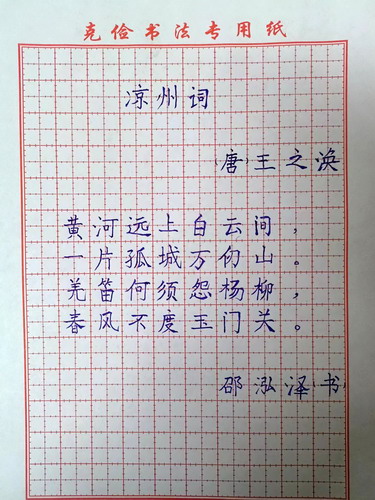 克俭书法专用纸
凉州词
(唐)王之涣
黄河远上白云间，
一片孤城万仞山。
羌笛何须怨杨柳，
春风不度玉门关。
邵泓泽(书)